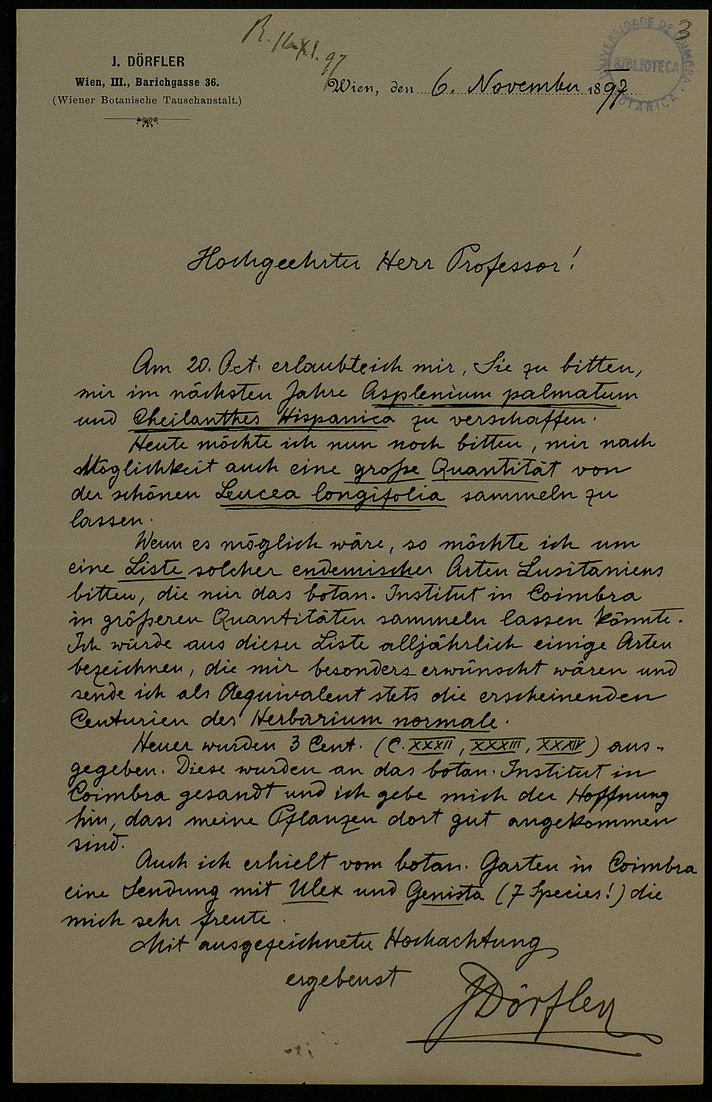 R. 16-XI.97
3
UNIVERSIDADE DE COIMBRA
BIBLIOTECA
BOTANICA
J. DÖRFLER
Wien, III., Barichgasse 36.
(Wiener Botanische Tauschanstalt.)
Wien, den 6. November 1897
Hochgeehrter Herr Professor!
Am 20. Oct. erlaubte ich mir, Sie zu bitten,
mir im nächsten Jahre Asplenium palmatum
und Cheilanthes Hispanica zu verschaffen.
Heute möchte ich nun noch bitten, mir nach
Möglichkeit auch eine große Quantität von
der schönen Leucea longifolia sammeln zu
lassen.
Wenn es möglich wäre, so möchte ich um
eine Liste solcher endemischer Arten Lusitaniens
bitten, die nur das botan. Institut in Coimbra
in größeren Quantitäten sammeln lassen könnte.
Ich würde aus dieser Liste alljährlich einige Arten
bezeichnen, die mir besonders erwünscht wären und
sende ich als Aequivalent stets die erscheinenden
Centurien des Herbarium normale.
Heuer wurden 3 Cent. (C. XXXII, XXXIII, XXXIV) aus-
gegeben. Diese wurden an das botan. Institut in
Coimbra gesandt und ich gebe mich der Hoffnung
hin, dass meine Pflanzen dort gut angekommen
sind.
Auch ich erhielt vom botan. Garten in Coimbra
eine Sendung mit Ulex und Genista (7 Species!) die
mich sehr freute.
Mit ausgezeichneter Hochachtung
ergebenst
JDörfler